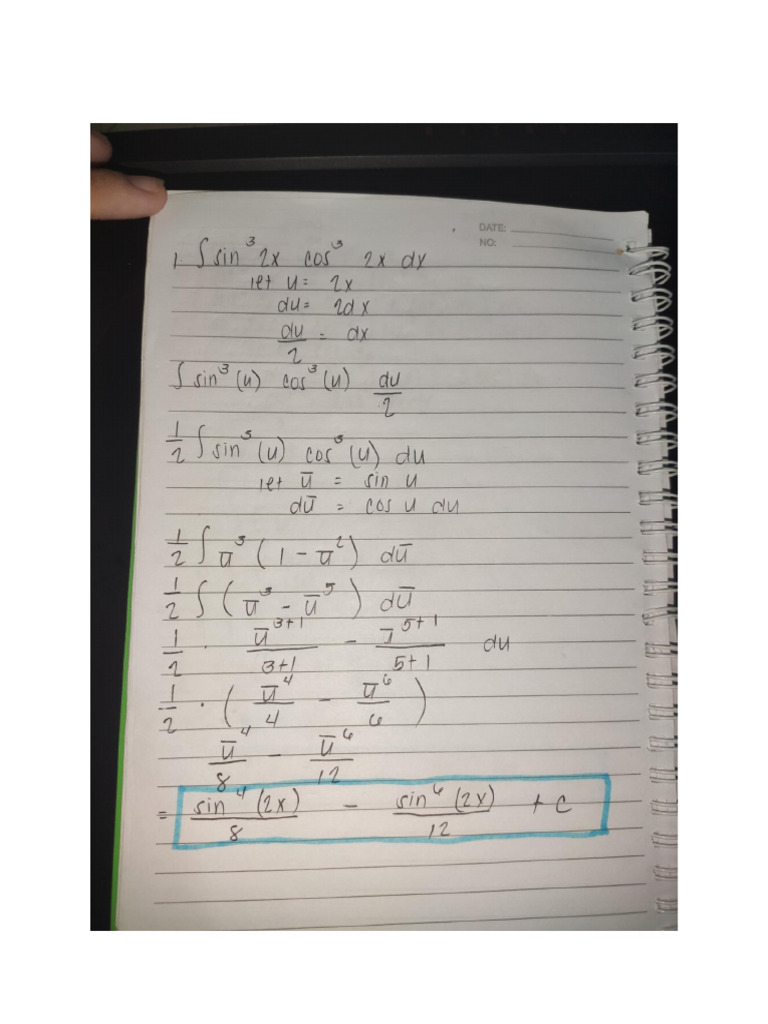 DATE:
NO:
1 ∫ sin³ 2x cos³ 2x dx
let u = 2x
du = 2dx
du/2 = dx
∫ sin³(u) cos³(u) du/2
1/2 ∫ sin³(u) cos³(u) du
let ū = sin u
dū = cos u du
1/2 ∫ ū³ (1 - ū²) dū
1/2 ∫ (ū³ - ū⁵) dū
1/2 · ū³⁺¹/3+1 - ū⁵⁺¹/5+1 du
1/2 · (ū⁴/4 - ū⁶/6)
ū⁴/8 - ū⁶/12
= sin⁴(2x)/8 - sin⁶(2x)/12 + C